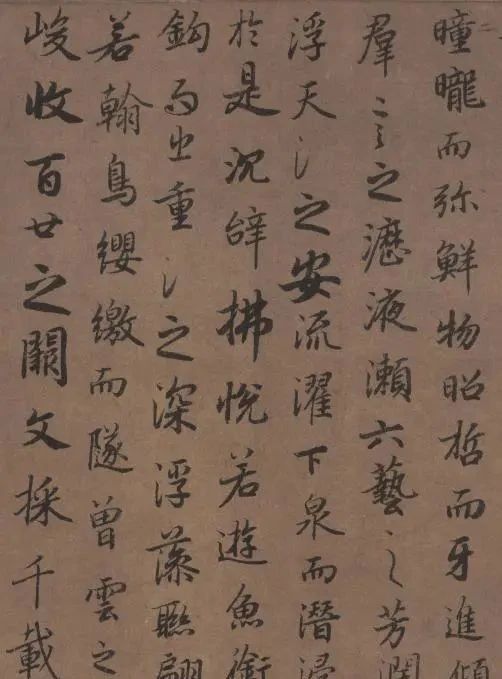 曈曨而弥鮮物昭哲而牙進傾
羣言之瀝液瀬六藝之芳潤
浮天之安流濯下泉而潛浸
於是沉辭拂悅若遊魚銜
鈎而出重之深浮藻聯翩
若翰鳥纓繳而隊曾雲之
峻收百廿之闕文採千載